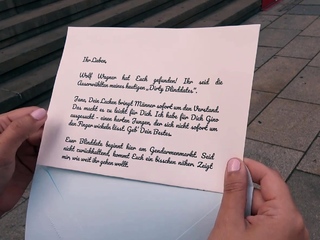 Ihr Lieben,
Wolf Wagner hat Euch gefunden! Ihr seid die
Auserwählten meines heutigen „Dirty Blinddates“.
Jana, Dein Lachen bringt Männer sofort um den Verstand.
Das macht es zu leicht für Dich. Ich habe für Dich Gino
ausgesucht - einen harten Jungen, der sich nicht sofort um
den Finger wickeln lässt. Geb' Dein Bestes.
Euer Blinddate beginnt hier am Gendarmenmarkt. Seid
nicht zurückhaltend, kommt Euch ein bisschen näher. Zeigt
mir, wie weit ihr gehen wollt.